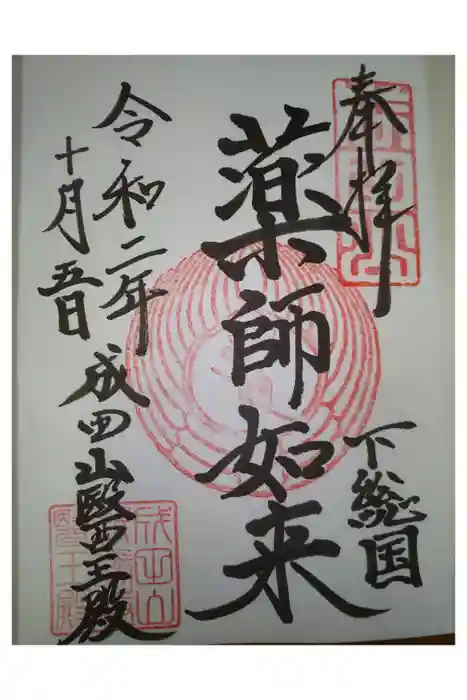 奉拝
下総国
薬師如来
令和二年
十月五日
成田山醫王殿